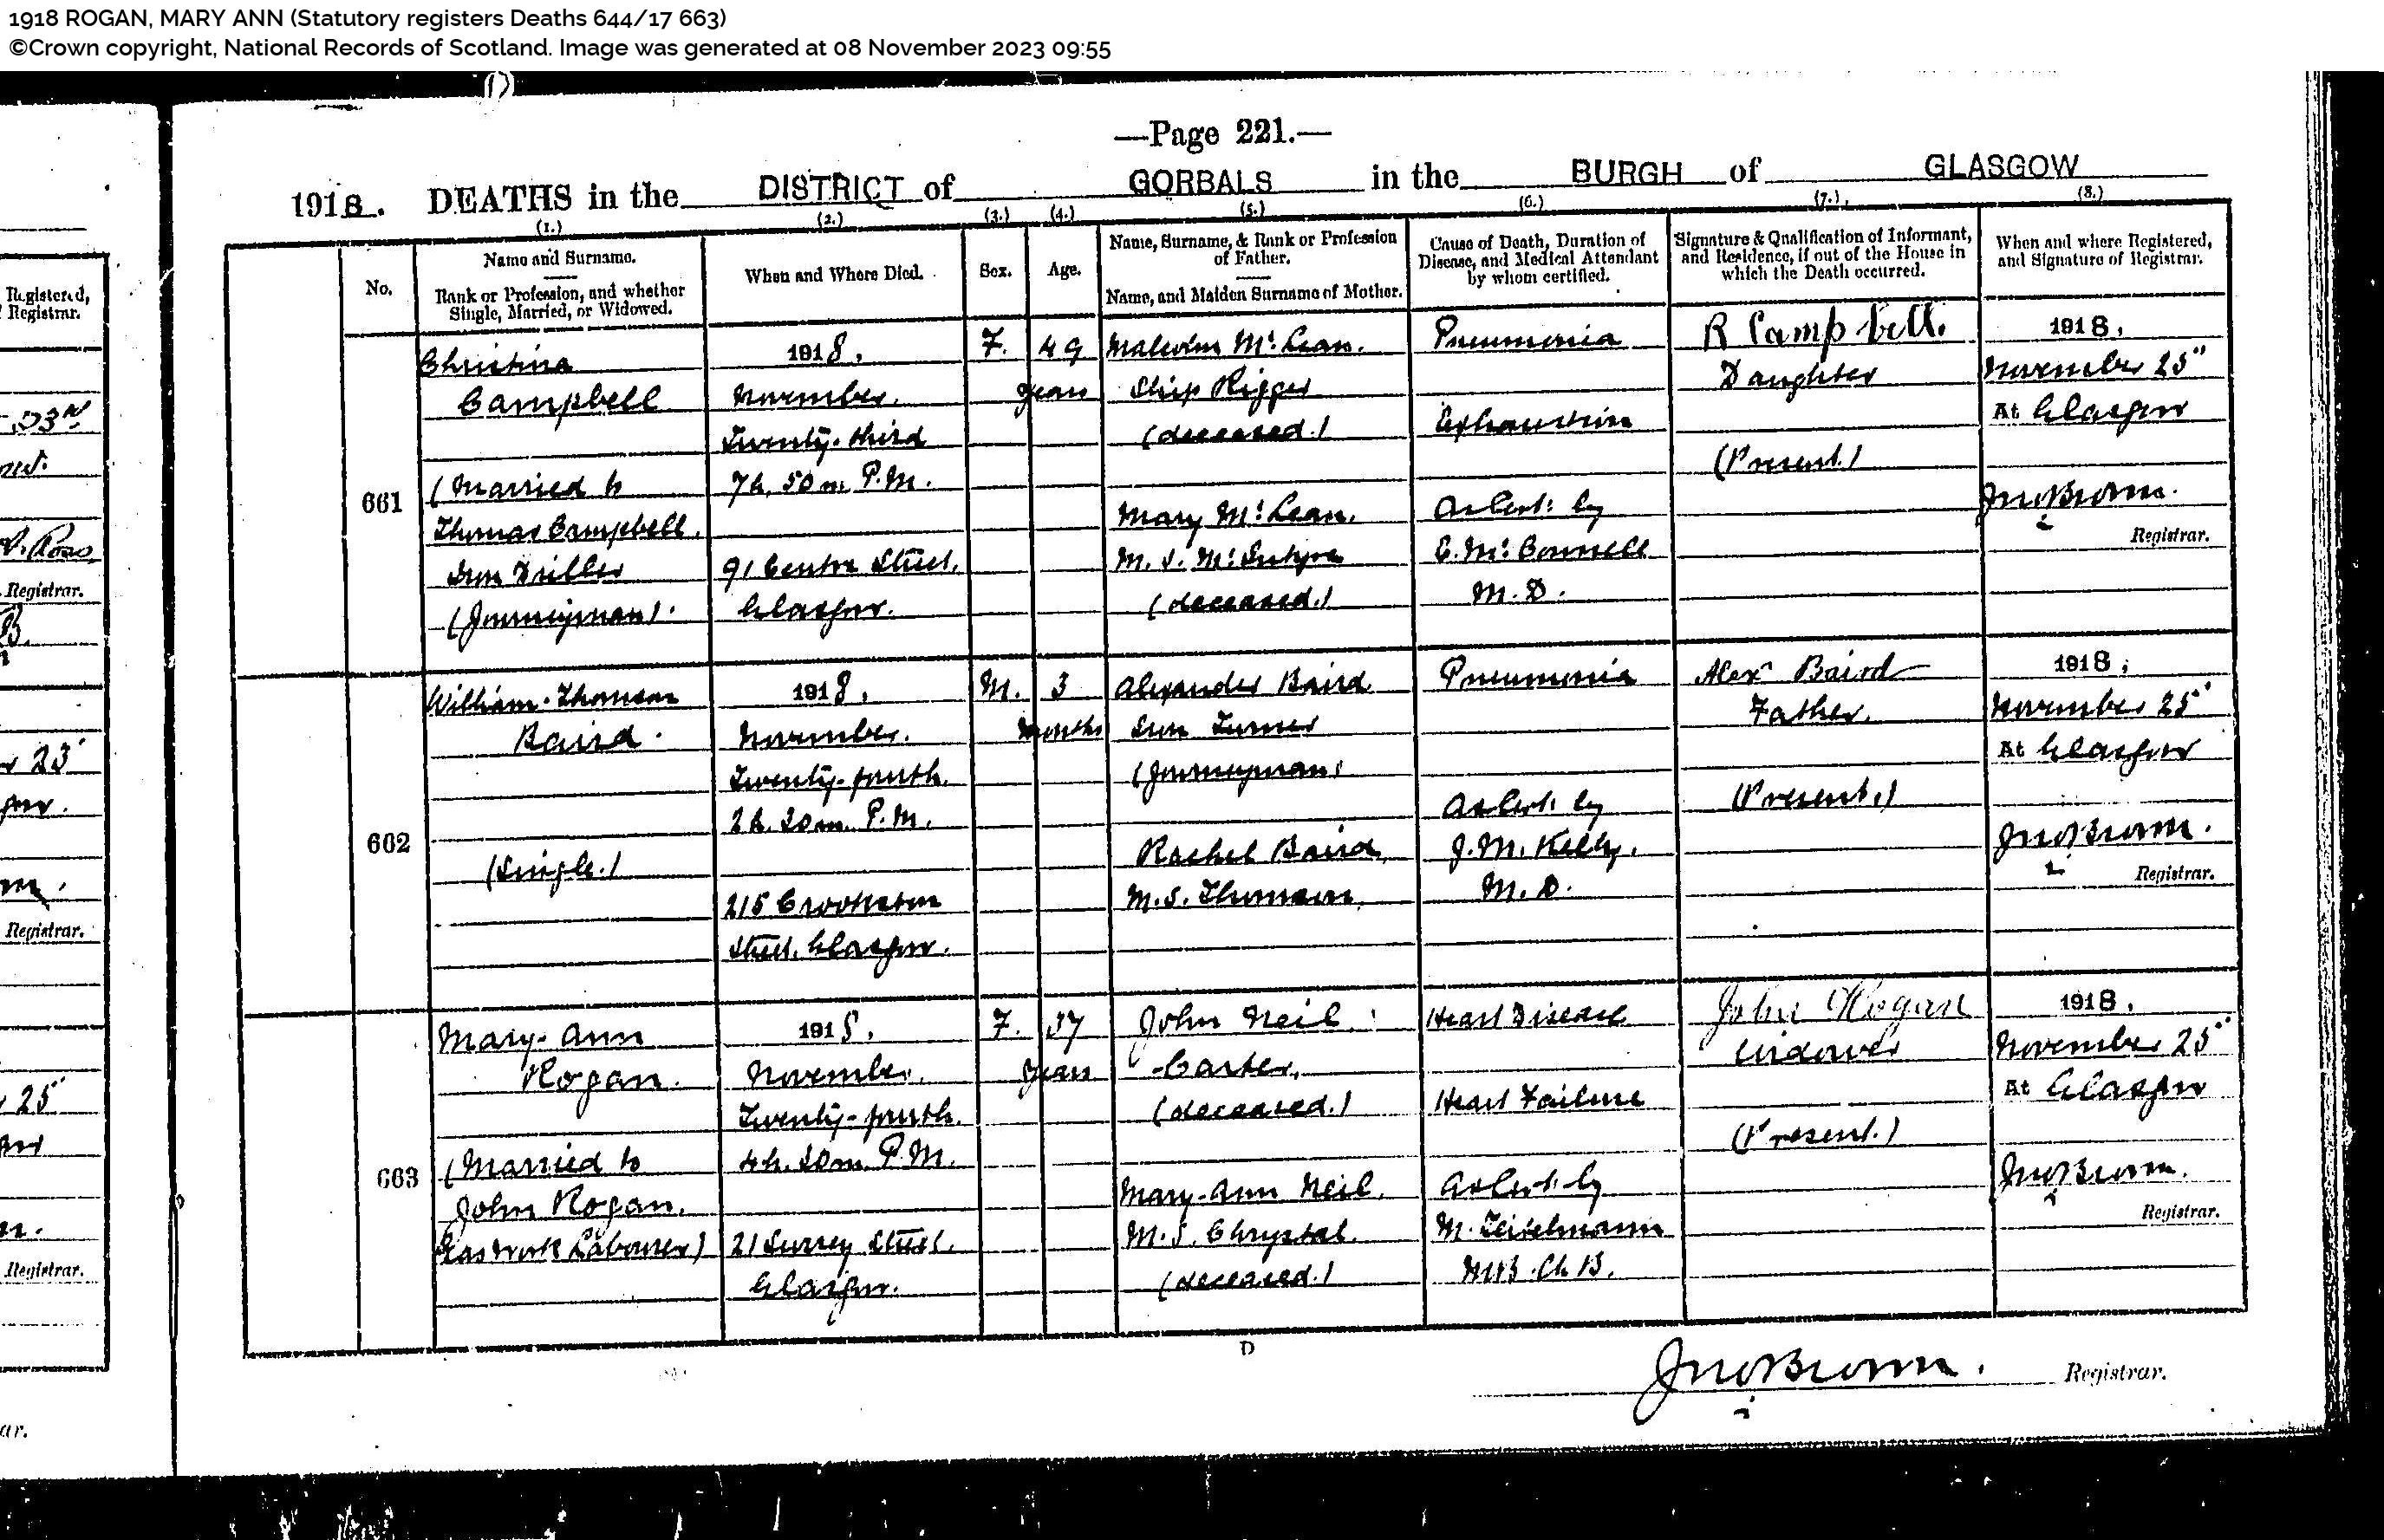 1918 ROGAN, MARY ANN (Statutory registers Deaths 644/17 663)
©Crown copyright, National Records of Scotland. Image was generated at 08 November 2023 09:55
—Page 221.—
1918. DEATHS in the DISTRICT of GORBALS in the BURGH of GLASGOW
(1.) (2.) (3.) (4.) (5.) (6.) (7.) (8.)
No.
Name and Surname.
Rank or Profession, and whether
Single, Married, or Widowed.
When and Where Died.
Sex.
Age.
Name, Surname, & Rank or Profession
of Father.
Name, and Maiden Surname of Mother.
Cause of Death, Duration of
Disease, and Medical Attendant
by whom certified.
Signature & Qualification of Informant,
and Residence, if out of the House in
which the Death occurred.
When and where Registered,
and Signature of Registrar.
661
Christina
Campbell
(Married to
Thomas Campbell.
Iron Driller
(Journeyman).
1918.
November.
Twenty-third
7h. 50m. P.M.
91 Centre Street.
Glasgow.
F.
49
years
Malcolm McLean.
Ship Rigger
(deceased.)
Mary McLean.
M.S. McIntyre
(deceased.)
Pneumonia
Exhaustion
As Cert. by
E. McConnell
M.D.
R Campbell.
Daughter
(Present.)
1918.
November 25"
At Glasgow
Jno Brown.
Registrar.
662
William Thomson
Baird.
(Single.)
1918.
November.
Twenty-fourth.
2h. 20m. P.M.
215 Crookston
Street. Glasgow.
M.
3
months
Alexander Baird
Iron Turner
(Journeyman)
Rachel Baird,
M.S. Thomson.
Pneumonia
As Cert. by
J.M. Kelly.
M.D.
Alexr Baird
Father.
(Present.)
1918.
November 25"
At Glasgow
Jno Brown.
Registrar.
663
Mary-Ann
Rogan.
(Married to
John Rogan.
Gas Work Labourer)
1918.
November.
Twenty-fourth.
4h. 20m. P.M.
21 Surrey Street.
Glasgow.
F.
37
years
John Neil.
Carter.
(deceased.)
Mary-Ann Neil.
M.S. Chrystal.
(deceased.)
Heart Disease
Heart Failure
As Cert. by
M.
M.B. Ch B.
John Rogan
Widower
(Present.)
1918.
November 25"
At Glasgow
Jno Brown.
Registrar.
D
Jno Brown. Registrar.